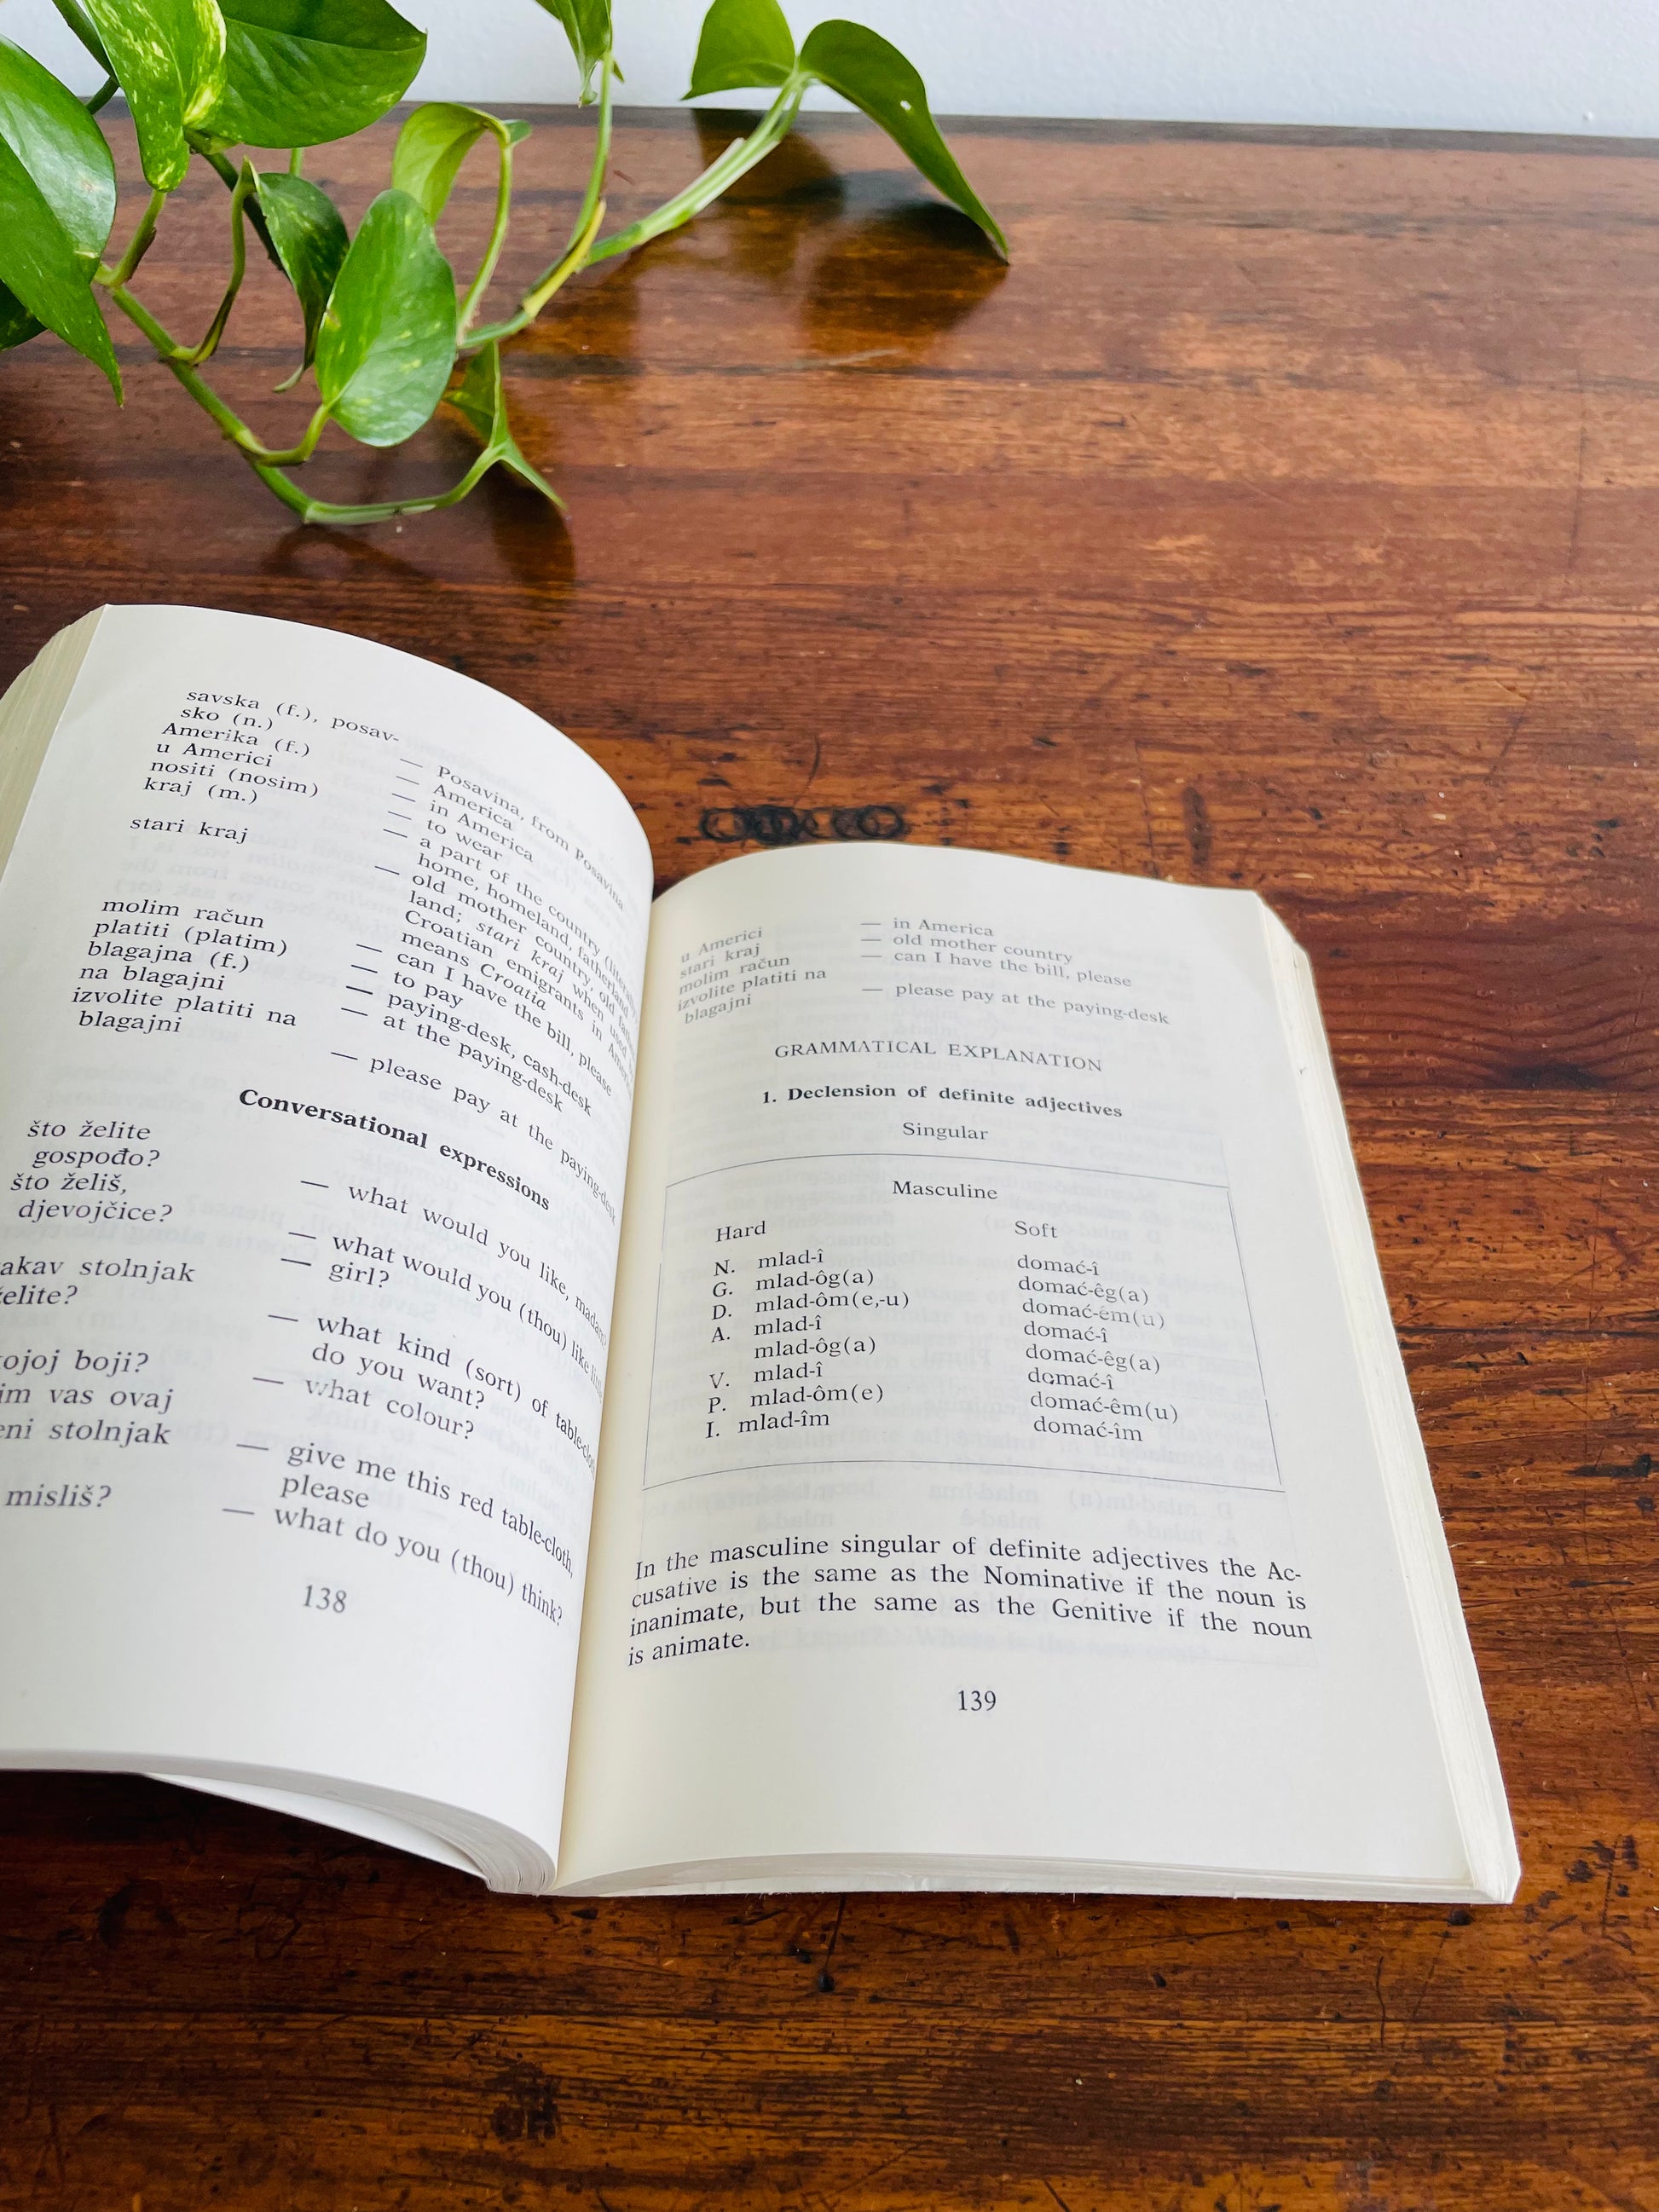 savska (f.), posav-
sko (n.) — Posavina, from Posavina
Amerika (f.) — America
u Americi — in America
nositi (nosim) — to wear
kraj (m.) — a part of the country (literally)
home, homeland, fatherland
stari kraj — old mother country, old
land; stari kraj when used
Croatian emigrants in
means Croatia
molim račun — can I have the bill, please
platiti (platim) — to pay
blagajna (f.) — paying-desk, cash-desk
na blagajni — at the paying-desk
izvolite platiti na
blagajni — please pay at the paying-desk
Conversational expressions
što želite
gospođo? — what would you like, madam?
što želiš, — what would you (thou) like
djevojčice? — girl?
stolnjak — what kind (sort) of table-cloth
do you want?
boji? — what colour?
vas ovaj — give me this red table-cloth,
stolnjak please
misliš? — what do you (thou) think?
138
u Americi — in America
stari kraj — old mother country
molim račun — can I have the bill, please
izvolite platiti na
blagajni — please pay at the paying-desk
GRAMMATICAL EXPLANATION
1. Declension of definite adjectives
Singular
Masculine
Hard Soft
N. mlad-î domać-î
G. mlad-ôg(a) domać-êg(a)
D. mlad-ôm(e,-u) domać-êm(u)
A. mlad-î domać-î
mlad-ôg(a) domać-êg(a)
V. mlad-î domać-î
P. mlad-ôm(e) domać-êm(u)
I. mlad-îm domać-îm
In the masculine singular of definite adjectives the Ac-
cusative is the same as the Nominative if the noun is
inanimate, but the same as the Genitive if the noun
is animate.
139